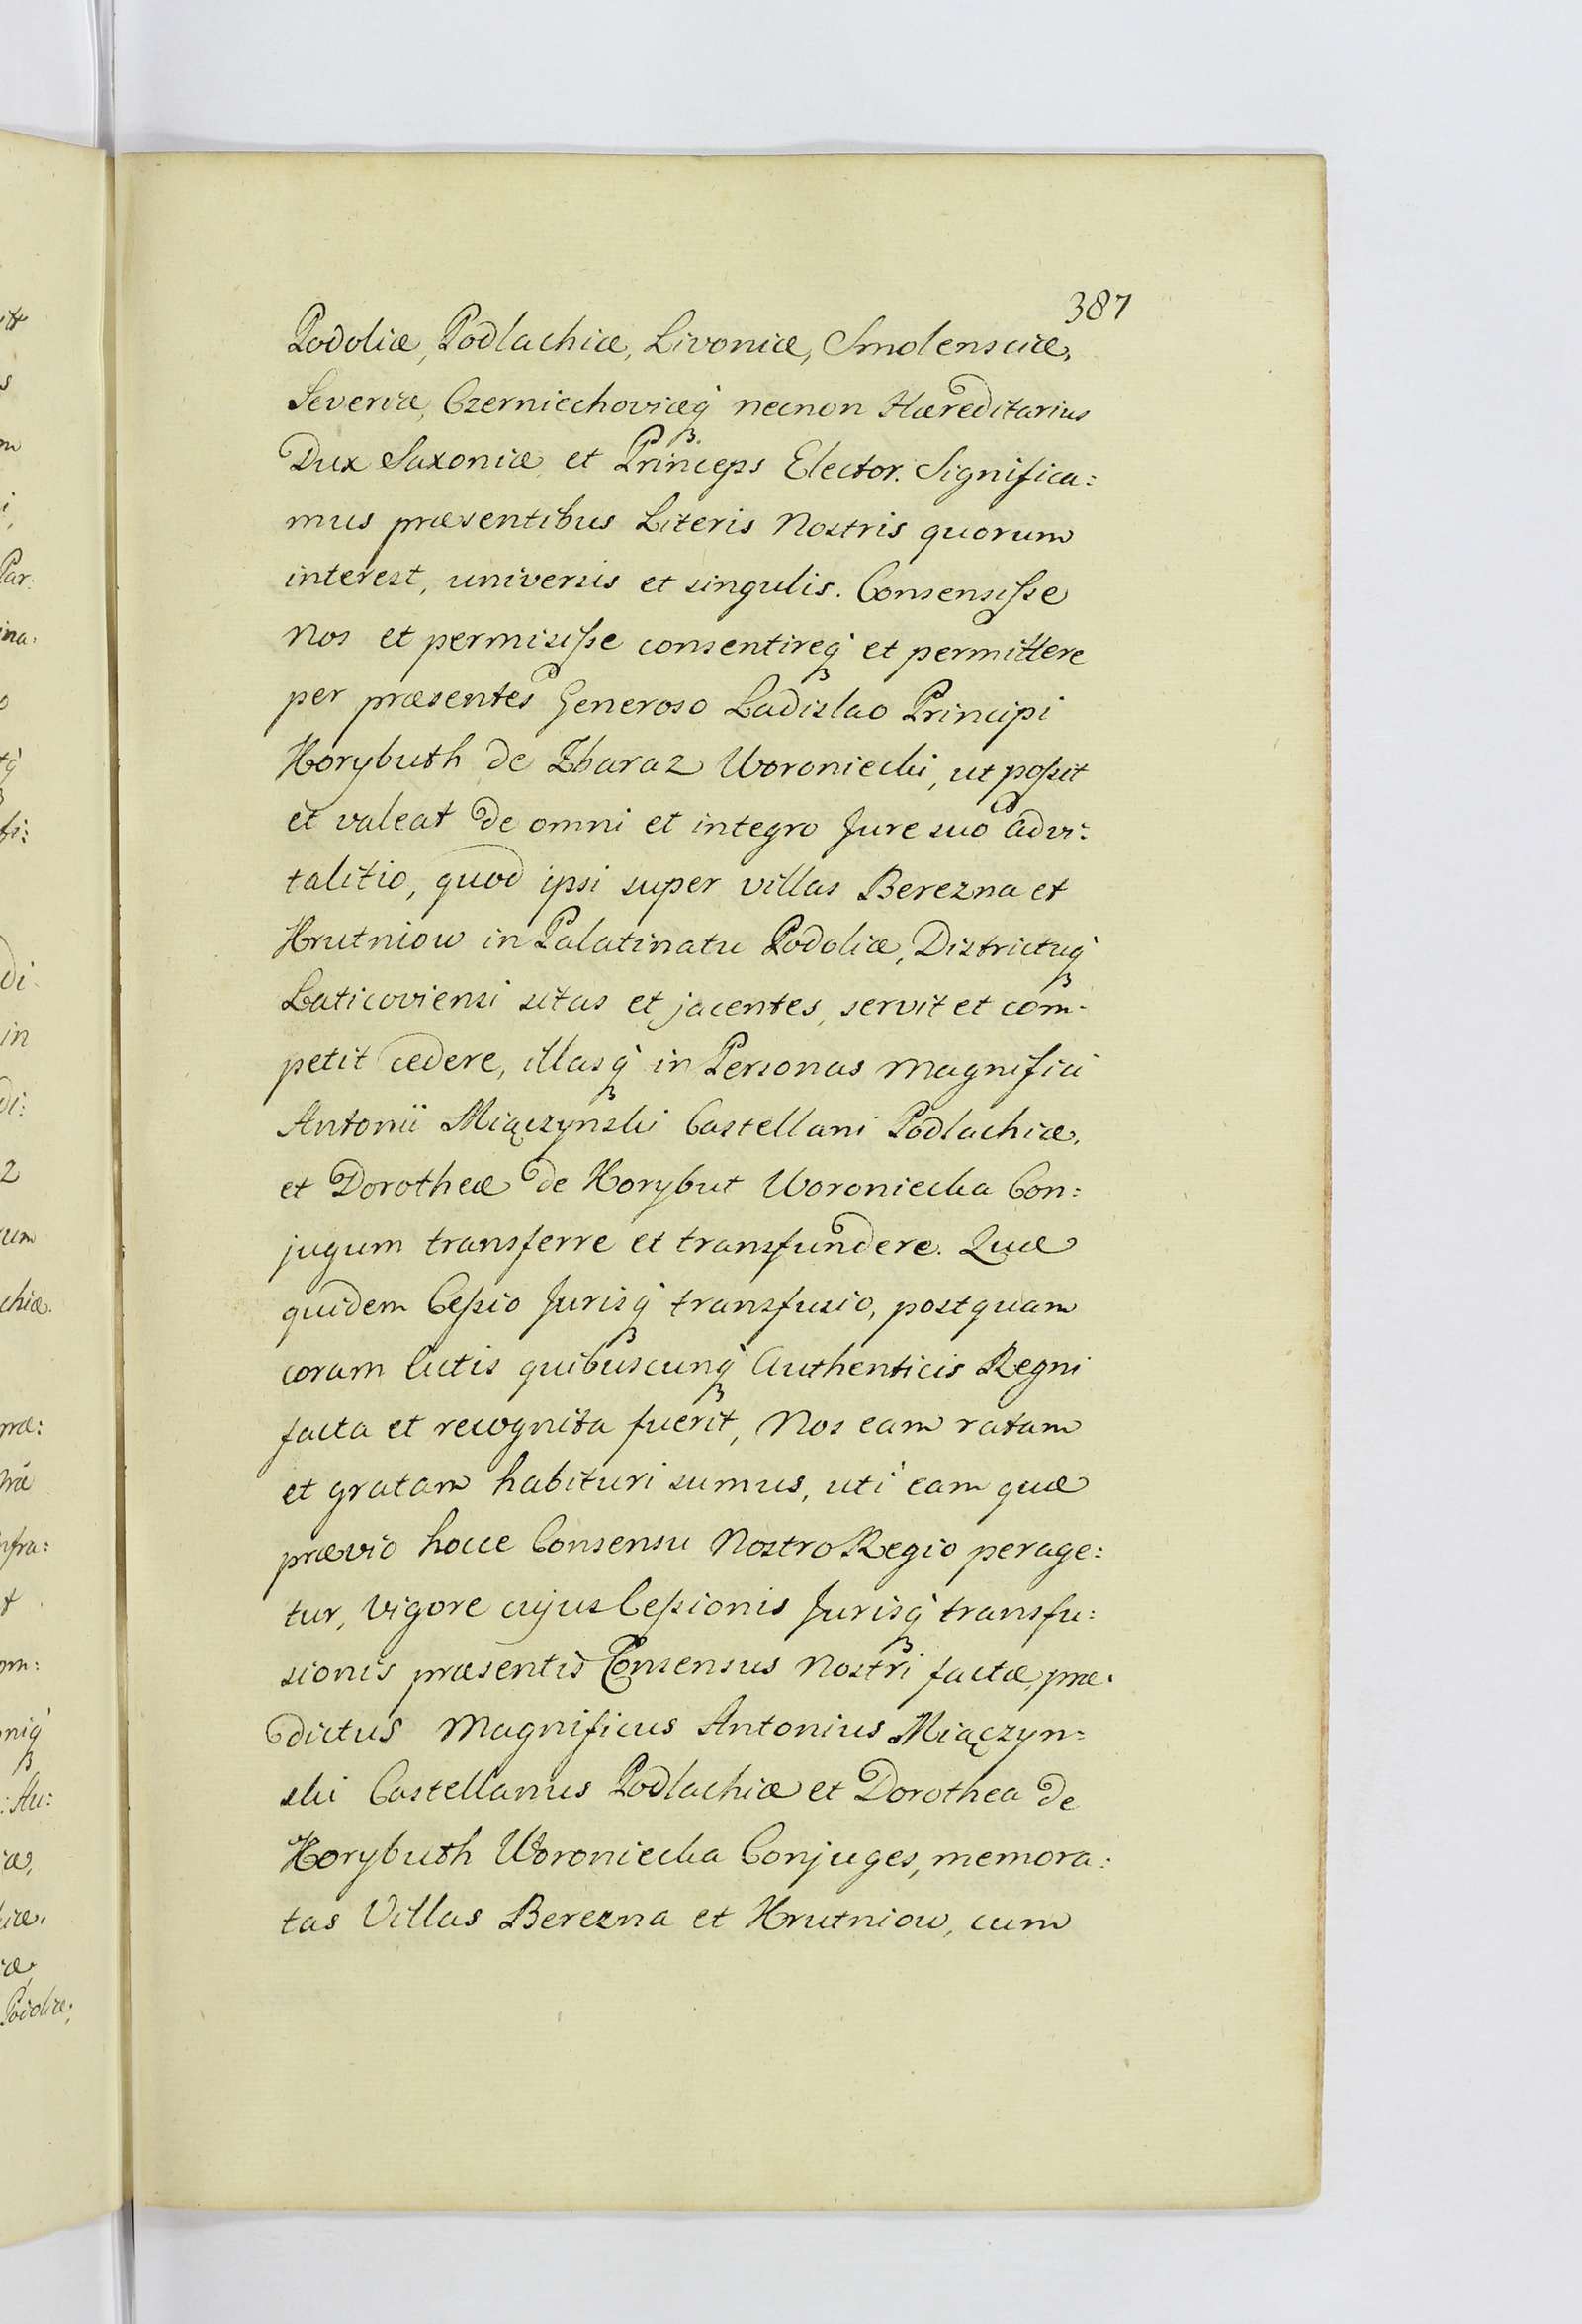 387
Podoliæ, Podlachiæ, Livoniæ, Smolensciæ,
Severiæ, Czerniechoviæq́ necnon Hæreditarius
Dux Saxoniæ et Princeps Elector. Significa:
mus præsentibus Literis Nostris quorum
interest, universis et singulis. Consensisse
Nos et permisisse consentireq́ et permittere
per præsentes Generoso Ladislao Principi
Korybuth de Zbaraz Woroniecki, ut possit
et valeat de omni et integro Jure suo advi:
talitio, quod ipsi super villas Berezna et
Hrutniow in Palatinatu Podoliæ, Districtuq́
Laticoviensi sitas et jacentes, servit et com-
petit cedere, illasq́ in Personas Magnifici
Antonii Miączynski Castellani Podlachiæ,
et Dorotheæ de Korybut Woroniecka Con:
jugum transferre et transfundere. Quæ
quidem Cessio Jurisq́ transfusio, postquam
coram Actis quibuscunq́ Authenticis Regni
facta et recognita fuerit, Nos eam ratam
et gratam habituri sumus, uti eam quæ
prævio hocce Consensu Nostro Regio perage:
tur, vigore cujus Cessionis Jurisq́ transfu:
sionis præsentis Consensus Nostri factæ, præ.
dictus Magnificus Antonius Miączyn=
ski Castellanus Podlachiæ et Dorothea de
Korybuth Woroniecka Conjuges, memora:
tas Villas Berezna et Hrutniow, cum